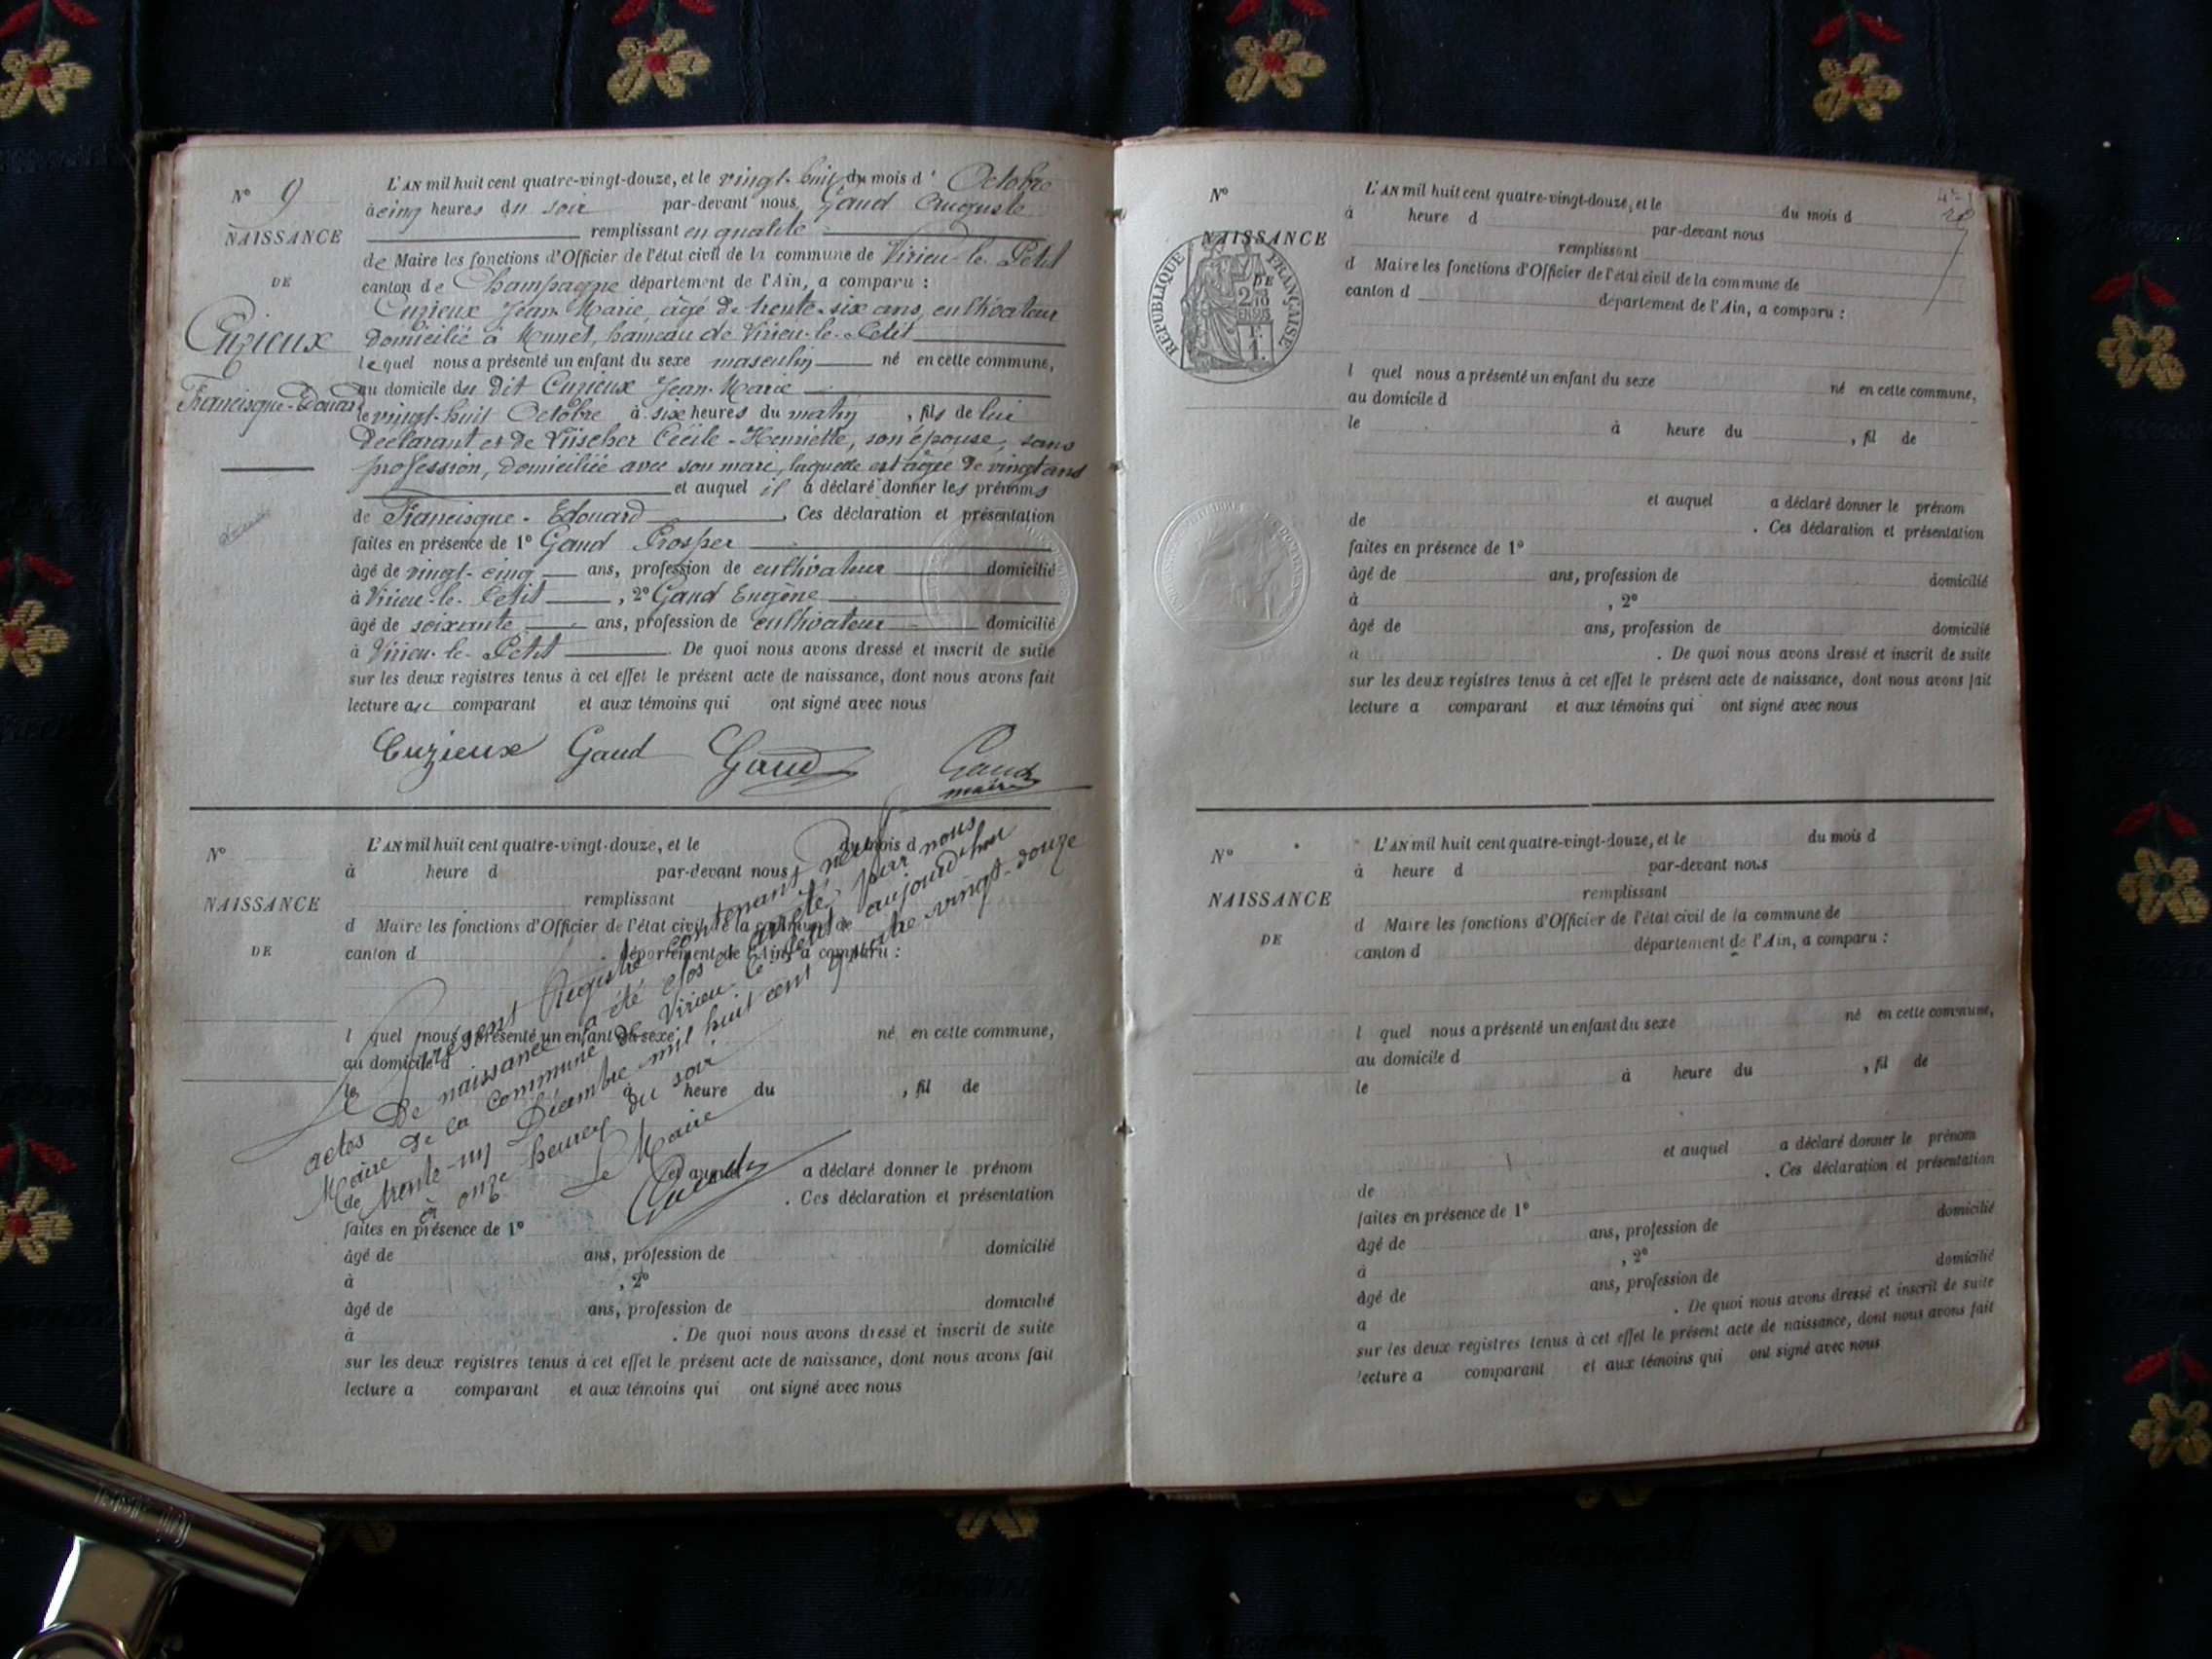 N° 9
NAISSANCE
DE
Cuzieux
Francisque-Edouard
L'AN mil huit cent quatre-vingt-douze, et le vingt-huit du mois d'Octobre
à cinq heures du soir par-devant nous, Gaud Auguste
remplissant en qualité
de Maire les fonctions d'Officier de l'état civil de la commune de Virieu-le-Petit
canton de Champagne département de l'Ain, a comparu :
Cuzieux Jean-Marie, âgé de trente-six ans, cultivateur
domicilié à Munet, hameau de Virieu-le-Petit
lequel nous a présenté un enfant du sexe masculin né en cette commune,
au domicile du dit Cuzieux Jean-Marie
le vingt-huit Octobre à six heures du matin, fils de lui
déclarant et de Fischer Cécile-Henriette, son épouse, sans
profession, domiciliée avec son mari, laquelle est âgée de vingt ans
et auquel il a déclaré donner les prénoms
de Francisque-Edouard. Ces déclaration et présentation
faites en présence de 1° Gaud Prosper
âgé de vingt-cinq ans, profession de cultivateur domicilié
à Virieu-le-Petit, 2° Gaud Eugène
âgé de soixante ans, profession de cultivateur domicilié
à Virieu-le-Petit. De quoi nous avons dressé et inscrit de suite
sur les deux registres tenus à cet effet le présent acte de naissance, dont nous avons fait
lecture au comparant et aux témoins qui ont signé avec nous
Cuzieux Gaud Gaud Gaud
maire
N°
NAISSANCE
DE
L'AN mil huit cent quatre-vingt-douze, et le du mois d
à heure d par-devant nous
remplissant
d Maire les fonctions d'Officier de l'état civil de la commune de
canton d département de l'Ain, a comparu :
l quel nous a présenté un enfant du sexe né en cette commune,
au domicile d
le à heure du , fil de
et auquel a déclaré donner le prénom
de . Ces déclaration et présentation
faites en présence de 1°
âgé de ans, profession de domicilié
à , 2°
âgé de ans, profession de domicilié
à . De quoi nous avons dressé et inscrit de suite
sur les deux registres tenus à cet effet le présent acte de naissance, dont nous avons fait
lecture a comparant et aux témoins qui ont signé avec nous
Le présent Registre contenant neuf
actes de naissance a été clos et arrêté par nous
Maire de la commune de Virieu-le-Petit aujourd'hui
trente-un Décembre mil huit cent quatre-vingt-douze
à onze heures du soir
Le Maire
Gaud
N°
NAISSANCE
REPUBLIQUE FRANÇAISE
DE
L'AN mil huit cent quatre-vingt-douze, et le du mois d
à heure d par-devant nous
remplissant
d Maire les fonctions d'Officier de l'état civil de la commune de
canton d département de l'Ain, a comparu :
l quel nous a présenté un enfant du sexe né en cette commune,
au domicile d
le à heure du , fil de
et auquel a déclaré donner le prénom
de . Ces déclaration et présentation
faites en présence de 1°
âgé de ans, profession de domicilié
à , 2°
âgé de ans, profession de domicilié
à . De quoi nous avons dressé et inscrit de suite
sur les deux registres tenus à cet effet le présent acte de naissance, dont nous avons fait
lecture a comparant et aux témoins qui ont signé avec nous
N°
NAISSANCE
DE
L'AN mil huit cent quatre-vingt-douze, et le du mois d
à heure d par-devant nous
remplissant
d Maire les fonctions d'Officier de l'état civil de la commune de
canton d département de l'Ain, a comparu :
l quel nous a présenté un enfant du sexe né en cette commune,
au domicile d
le à heure du , fil de
et auquel a déclaré donner le prénom
de . Ces déclaration et présentation
faites en présence de 1°
âgé de ans, profession de domicilié
à , 2°
âgé de ans, profession de domicilié
a . De quoi nous avons dressé et inscrit de suite
sur les deux registres tenus à cet effet le présent acte de naissance, dont nous avons fait
lecture a comparant et aux témoins qui ont signé avec nous